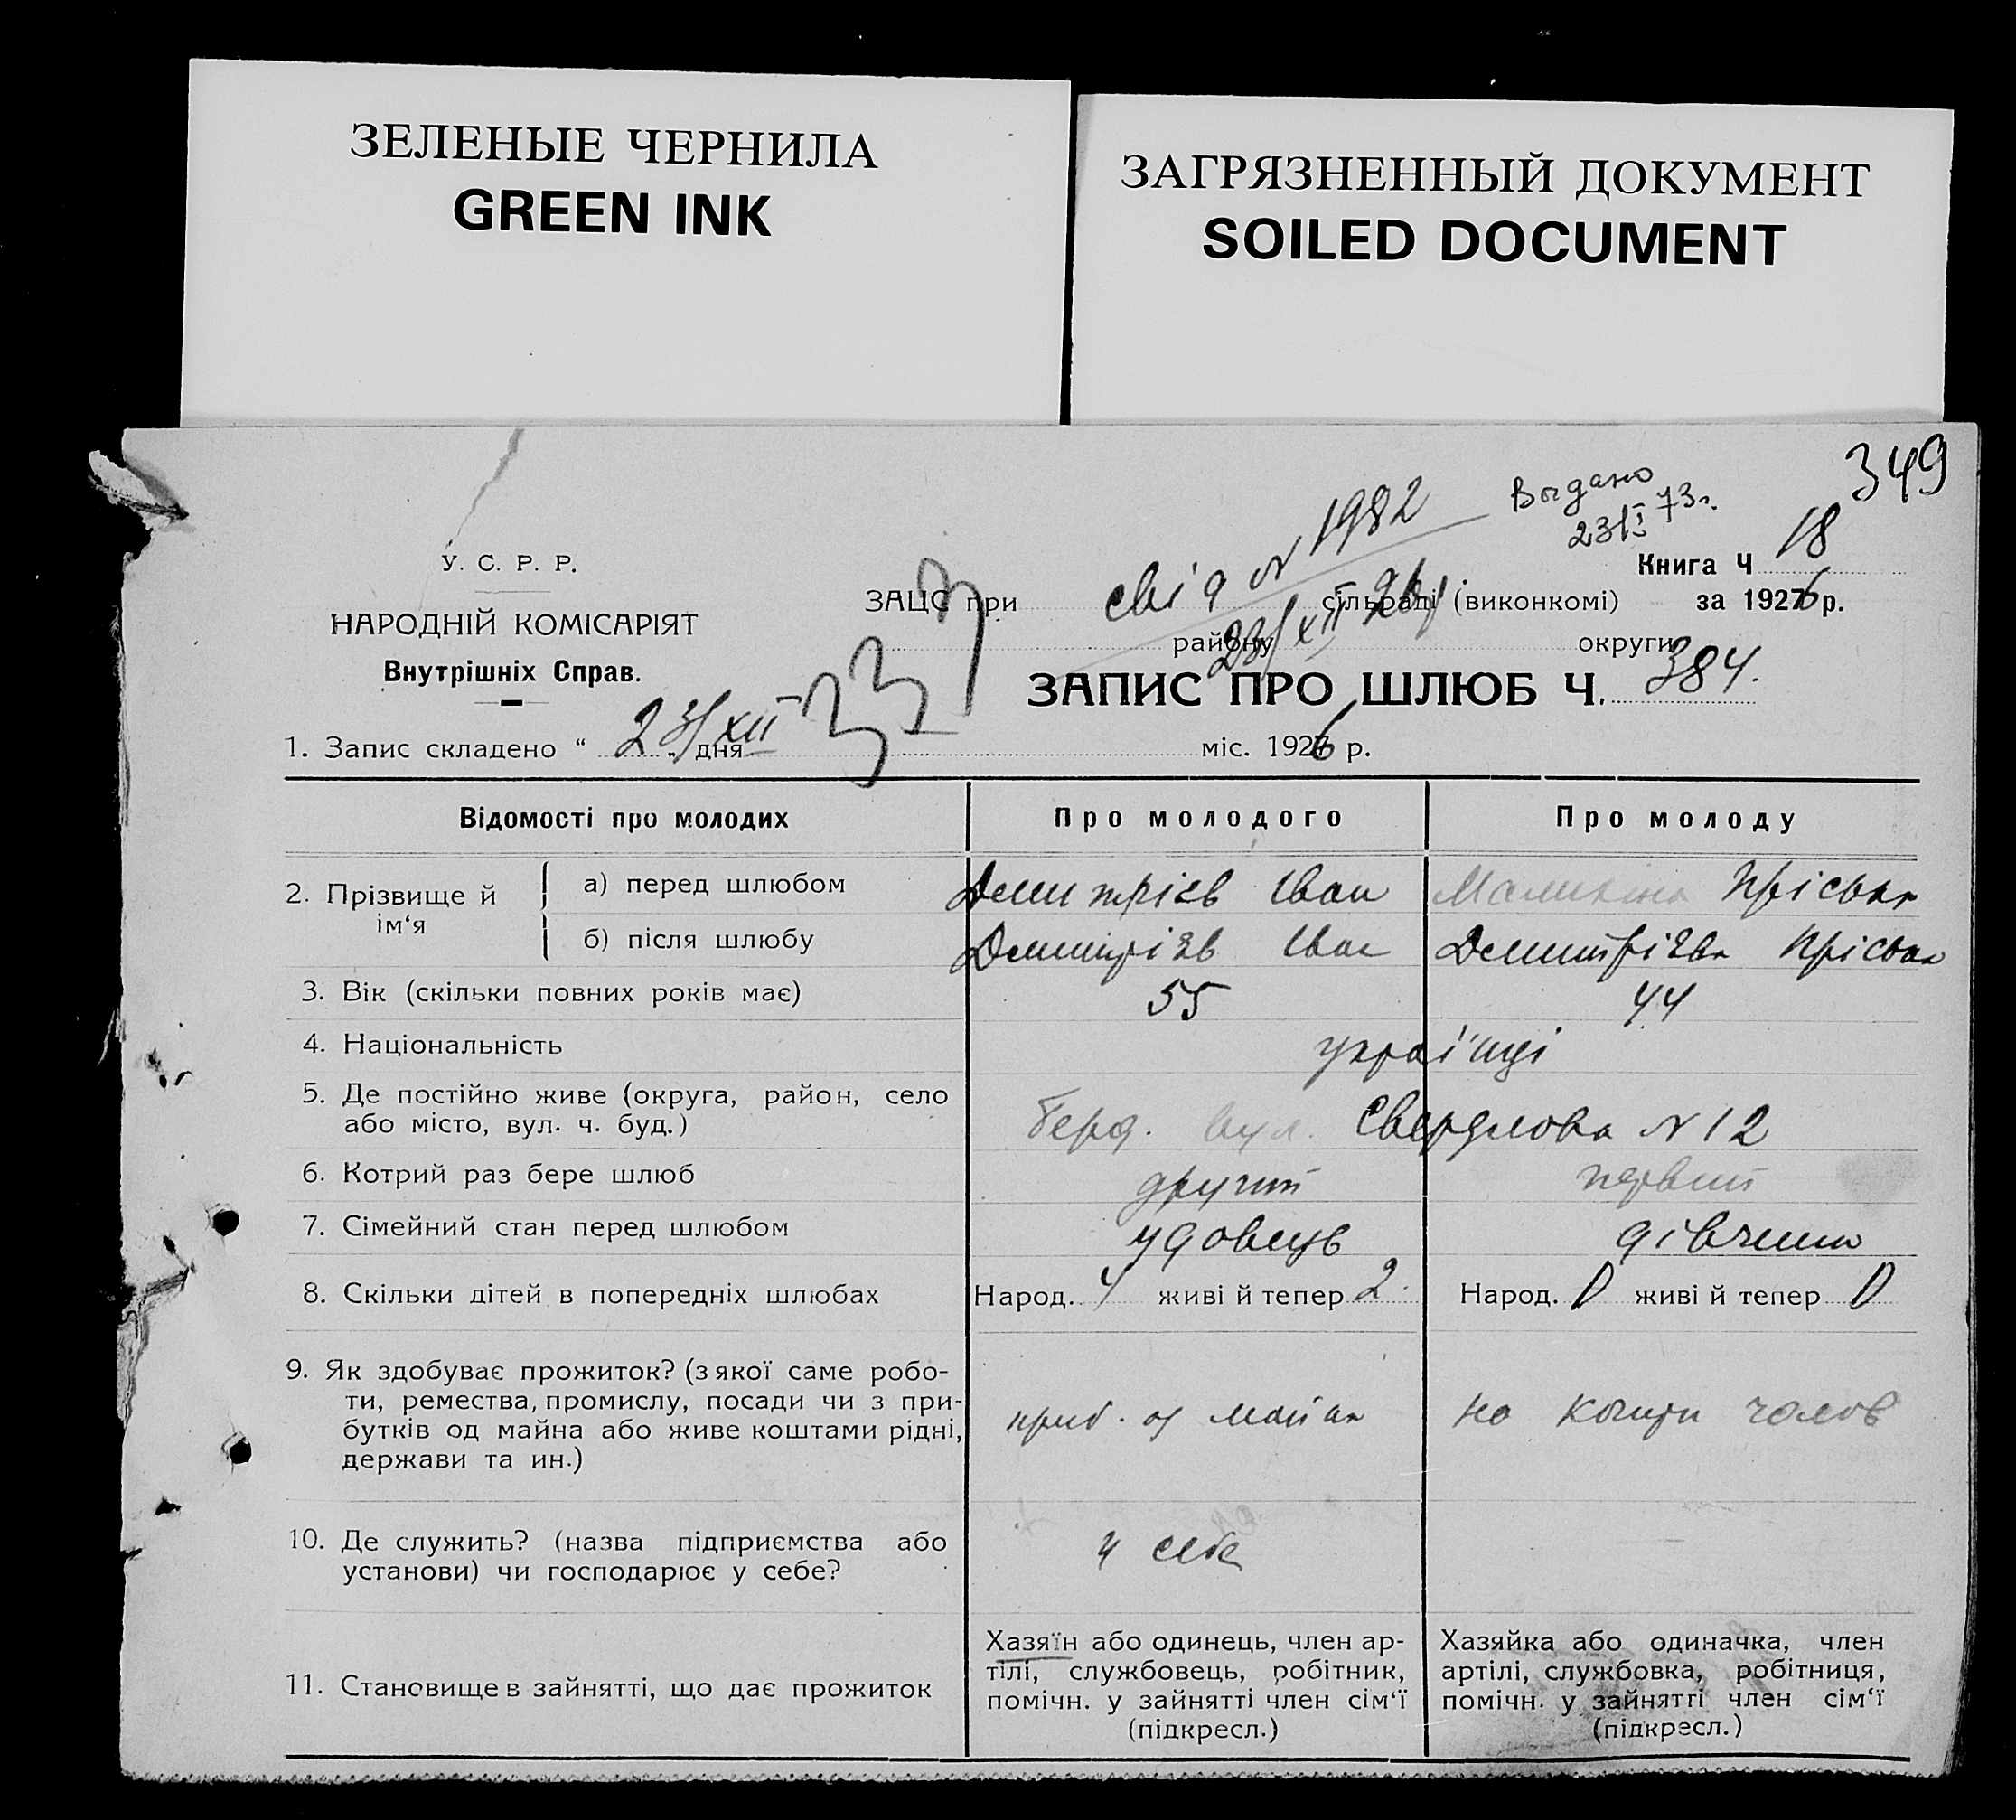 ЗЕЛЕНЫЕ ЧЕРНИЛА
GREEN INK
ЗАГРЯЗНЕННЫЙ ДОКУМЕНТ
SOILED DOCUMENT
349
Выдано
23/I 73г.
У. С. Р. Р.
НАРОДНІЙ КОМІСАРІЯТ
Внутрішніх Справ.
Книга Ч 18
свід N 1982
ЗАЦС при сільраді (виконкомі) за 1926 р.
району округи
23/XII 26
337
ЗАПИС ПРО ШЛЮБ Ч. 384.
1. Запис складено “ 23/XII „ дня міс. 1926 р.
Відомості про молодих Про молодого Про молоду
2. Прізвище й ім‘я
а) перед шлюбом Демитрієв Іван Прiська
б) після шлюбу Демитрієв Іван Демитрієва Пріська
3. Вік (скільки повних років має) 55 44
4. Національність українці
5. Де постійно живе (округа, район, село
або місто, вул. ч. буд.) Берд. вул. Свердлова N 12
6. Котрий раз бере шлюб другий первий
7. Сімейний стан перед шлюбом удовець дівчина
8. Скільки дітей в попередніх шлюбах Народ. 4 живі й тепер 2 Народ. 0 живі й тепер 0
9. Як здобуває прожиток? (з якої саме робо-
ти, ремества, промислу, посади чи з при-
бутків од майна або живе коштами рідні,
держави та ин.)
приб. од майна
на кошти чолов
10. Де служить? (назва підприємства або
установи) чи господарює у себе?
у себе
11. Становище в зайнятті, що дає прожиток
Хазяїн або одинець, член ар-
тілі, службовець, робітник,
помічн. у зайнятті член сім‘ї
(підкресл.)
Хазяйка або одиначка, член
артілі, службовка, робітниця,
помічн. у зайнятті член сім‘ї
(підкресл.)